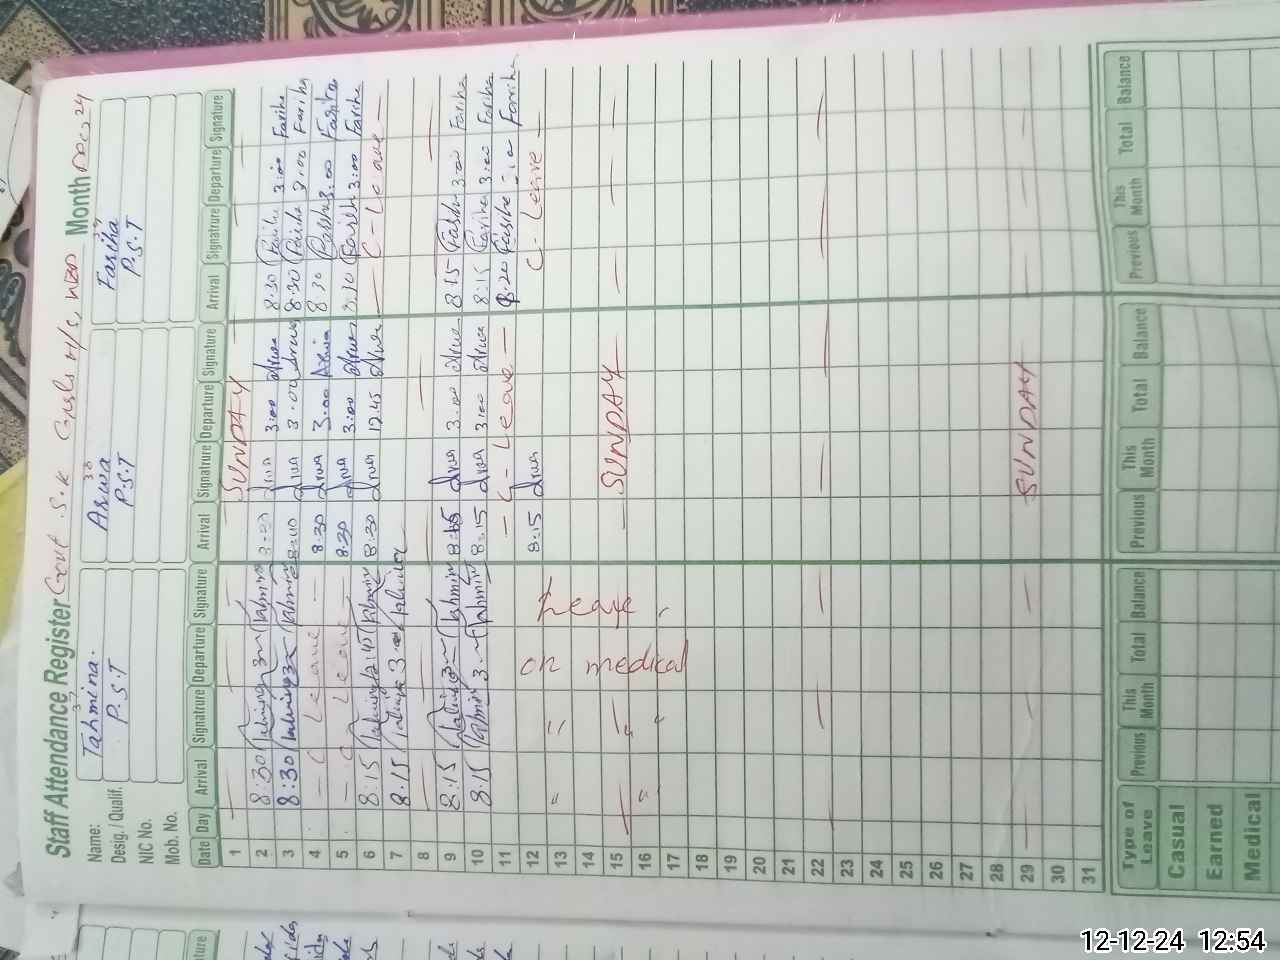 Staff Attendance Register Govt S.K Girls H/S, Month Dec 24
Name: Tahmina. Arwa Fariha
Desig. / Qualif. P.S.T P.S.T P.S.T
NIC No.
Mob. No.
Date Day Arrival Signatrure Departure Signature Arrival Signatrure Departure Signature Arrival Signatrure Departure Signature
1 SUNDAY
2 8:30 Tahmina 3:00 Arwa 8:30 Fariha 3:00 Fariha
3 8:30 Tahmina 8:40 Arwa 3:00 Arwa 8:30 Fariha 3:00 Fariha
4 C Leave 8:30 Arwa 3:00 Arwa 8 30 Fariha 3:00 Fariha
5 C Leave 8:30 Arwa 3:00 Arwa 8:30 Fariha 3:00 Fariha
6 8:15 Tahmina 12:45 Tahmina 8:30 Arwa 12.45 Arwa C - Leave
7 8:15 Tahmina 3 Tahmina
8
9 8:15 Tahmina 3 Tahmina 8:15 Arwa 3:00 Arwa 8:15 Fariha 3:00 Fariha
10 8:15 Tahmina 3 Tahmina 8:15 Arwa 3:00 Arwa 8:15 Fariha 3:00 Fariha
11 C - Leave 8:20 Fariha Fariha
12 8:15 Arwa C - Leave
13 " " on medical Leave
14
15 " SUNDAY
16 " "
17
18
19
20
21
22
23
24
25
26
27
28
29 SUNDAY
30
31
Type of Leave Previous This Month Total Balance Previous This Month Total Balance Previous This Month Total Balance
Casual
Earned
Medical
12-12-24 12:54